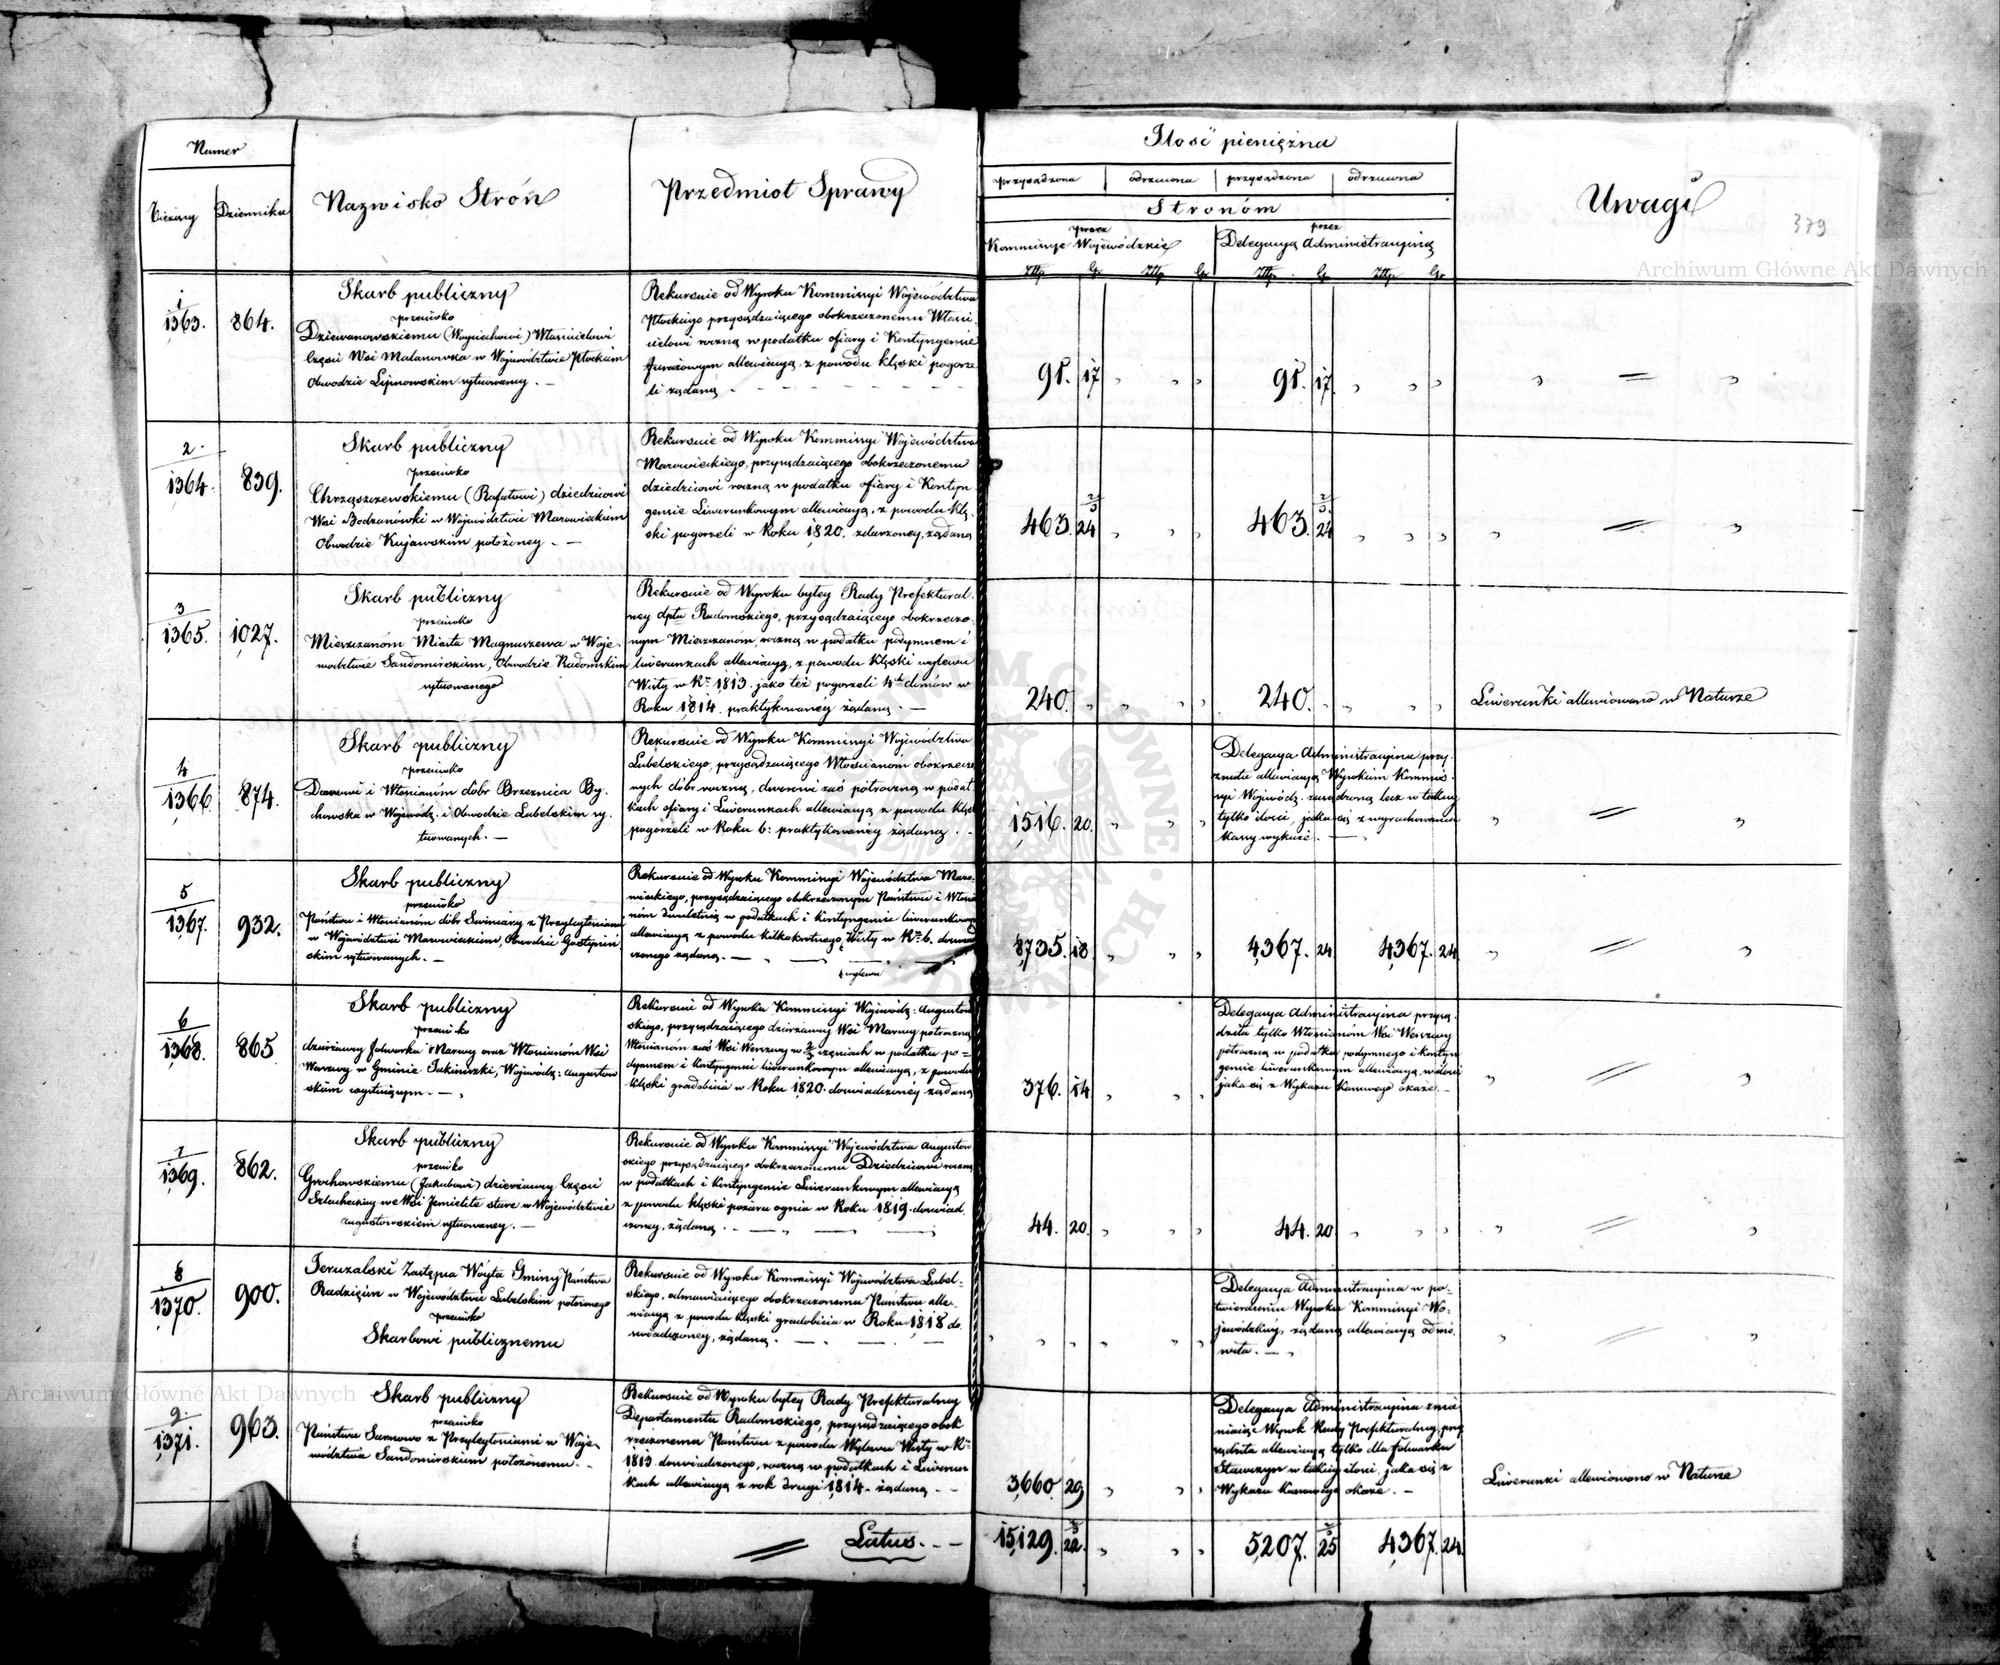 Numer
Bieżący
Dziennika
Nazwisko Strón
Przedmiot Sprawy
Ilość pieniężna
przysądzona odrzucona przysądzona odrzucona
Stronóm
przez
Kommissye Wojewódzkie
przez
Delegacyą Administracyiną
Złp. Gr. Złp. Gr. Złp. Gr. Złp. Gr.
Uwagi
379
Archiwum Główne Akt Dawnych
1
1363.
864.
Skarb publiczny
przeciwko
Dziewanowskiemu (Woyciechowi) Właścicielowi
Części Wsi Malanowka w Województwie Płockim
Obwodzie Lipnowskim sytuowaney. —
Rekursie od Wyroku Kommissyi Województwa
Płockiego przysądzaiącego obokrzeczonemu Właści-
cielowi roczną w podatku ofiary i Kontyngensie
furażowym allewiacyą, z powodu klęski pogorze
li żądaną
91. 17
91. 17
2
1364.
839.
Skarb publiczny
przeciwko
Chrząszczewskiemu (Rafałowi) dziedzicowi
Wsi Bodzanówki w Województwie Mazowieckim
Obwodzie Kujawskim położoney. —
Rekursie od Wyroku Kommissyi Województwa
Mazowieckiego, przysądzaiącego obokrzeczonemu
dziedzicowi roczną w podatku ofiary i Kontyn
gensie Liwerunkowym allewiacyą, z powodu klę-
ski pogorzeli w Roku 1820. zdarzoney, żądaną
463. 24 2/3
463. 24 2/3
3
1365.
1027.
Skarb publiczny
przeciwko
Mieszczanóm Miasta Magnuszewa w Woje-
wodztwie Sandomirskim, Obwodzie Radomskim
sytuowanego
Rekursie od Wyroku byłey Rady Prefektural-
ney dptu Radomskiego, przysądzaiącego obokrzeczo-
nym Mieszczanóm roczną w podatku podymnem i
liwerunkach allewiacyą, z powodu klęski wylewu
Wisły w Rku 1813. jako też pogorzeli 4ch domów w
Roku 1814. praktykowaney żądaną. —
240.
240.
Liwerunki allewiowano w Naturze
4
1366.
874.
Skarb publiczny
przeciwko
Dworowi i Włościanóm dóbr Brzeznica By-
chowska w Wojewódz. i Obwodzie Lubelskim sy-
tuowanych. —
Rekursie od Wyroku Kommissyi Województwa
Lubelskiego, przysądzaiącego Włościanom obokrzeczo
nych dóbr roczną, dworowi zaś półroczną w podat
kach ofiary i Liwerunkach allewiacyą z powodu klęs
pogorzeli w Roku b: praktykowaney żądaną. —
1516. 20.
Delegacya Administracyina przy-
znała allewiacyą Wyrokiem Kommis-
syi Wojewódz. zasądzoną lecz w takiey
tylko ilości, jaka się z wyrachowania
Kassy wykaże. —
5
1367.
932.
Skarb publiczny
przeciwko
Państwu i Włościanóm dóbr Swiniary z Przyległościami
w Województwie Mazowieckim, Obwodzie Gostyniń
skim sytuowanych. —
Rekursie od Wyroku Kommissyi Województwa Mazo-
wieckiego, przysądzaiącego obokrzeczonym Państwu i Włości
nóm dwuletnią w podatkach i Kontyngensie liwerunkowym
allewiacyą z powodu kilkakrotnego Wisły w Rku b. doswiad
czonego żądaną. —
wylewu
8735. 18.
4367. 24
4367. 24
6
1368.
865
Skarb publiczny
przeciwko
dzierżawcy folwarku Marwy oraz Włościanóm Wsi
Werszwy w Gminie Jakimiszki, Wojewódz: Augustow
skim
Rekursie od Wyroku Kommissyi Wojewódz: Augustow
skiego, przysądzaiącego dzierżawcy Wsi Marwy półroczną
Włościanóm zaś Wsi Werszwy w częściach w podatku po-
dymnem i Kontyngensie liwerunkowym allewiacyą, z powodu
klęski gradobicia w Roku 1820. doswiadczoney żądaną
376. 14
Delegacya Administracyina przysą-
dziła tylko Włościanóm Wsi Werszwy
półroczną w podatku podymnego i kontyn
gensie liwerunkowym allewiacyą, w ilości
jaka się z Wykazu Kassowego okaże. —
7
1369.
862.
Skarb publiczny
przeciwko
Grochowskiemu (Jakubowi) dzierżawcy Części
Szlacheckiey we Wsi Jemielite stare w Województwie
Augustowskiem sytuowaney. —
Rekursie od Wyroku Kommissyi Województwa Augustow
skiego przysądzaiącego obokrzeczonemu Dziedzicowi roczną
w podatkach i Kontyngensie Liwerunkowym allewiacyą
z powodu klęski pożaru ognia w Roku 1819. doswiad
czoney, żądaną. —
44. 20.
44. 20.
8
1370.
900.
Jeruzalski Zastępca Wóyta Gminy Państwa
Radzięcin w Województwie Lubelskim położonego
przeciwko
Skarbowi publicznemu
Rekursie od Wyroku Kommissyi Województwa Lubel-
skiego, odmawiaiącego obokrzeczonemu Państwu alle-
wiacyą z powodu klęski gradobicia w Roku 1818 do-
swiadczoney, żądaną. —
Delegacya Administracyina w po-
twierdzeniu Wyroku Kommissyi Wo-
jewódzkiey, żądaną allewiacyą odmó-
wiła. —
Archiwum Główne Akt Dawnych
9.
1371.
963.
Skarb publiczny
przeciwko
Państwu Sarnowo z Przyległościami w Woje-
wództwie Sandomirskim położonemu. —
Rekursie od Wyroku byłey Rady Prefekturalney
Departamentu Radomskiego, przysądzaiącego obok
rzeczonemu Państwu z powodu Wylewu Wisły w Rku
1813. doswiadczonego, roczną w podatkach i Liwerun
kach allewiacyą z rok drugi 1814. żądaną. —
3660. 29
Delegacya Administracyina zmie
niaiąc Wyrok Rady Prefekturalney, przy
sądziła allewiacyą tylko dla folwarku
Sławczyn w takiey ilości, jaka się z
Wykazu Kassowego okaże. —
Liwerunki allewiowano w Naturze
Latus. —
15,129. 22 2/3
5207. 25 2/3
4367. 24.